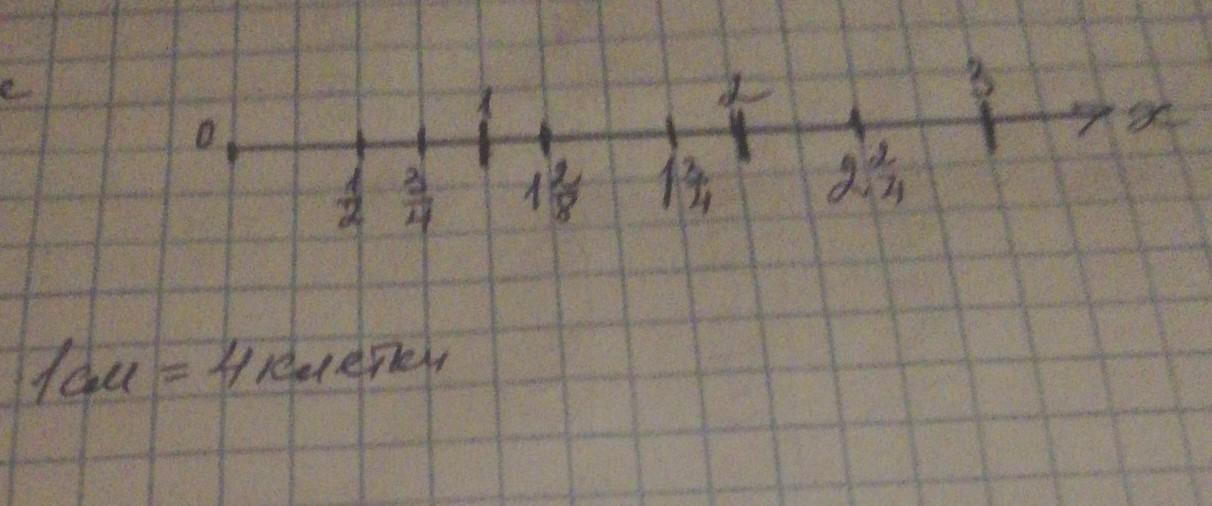 с
0 1 2 3 x
1/2 3/4 1 2/8 1 3/4 2 2/4
1 см = 4 клетки